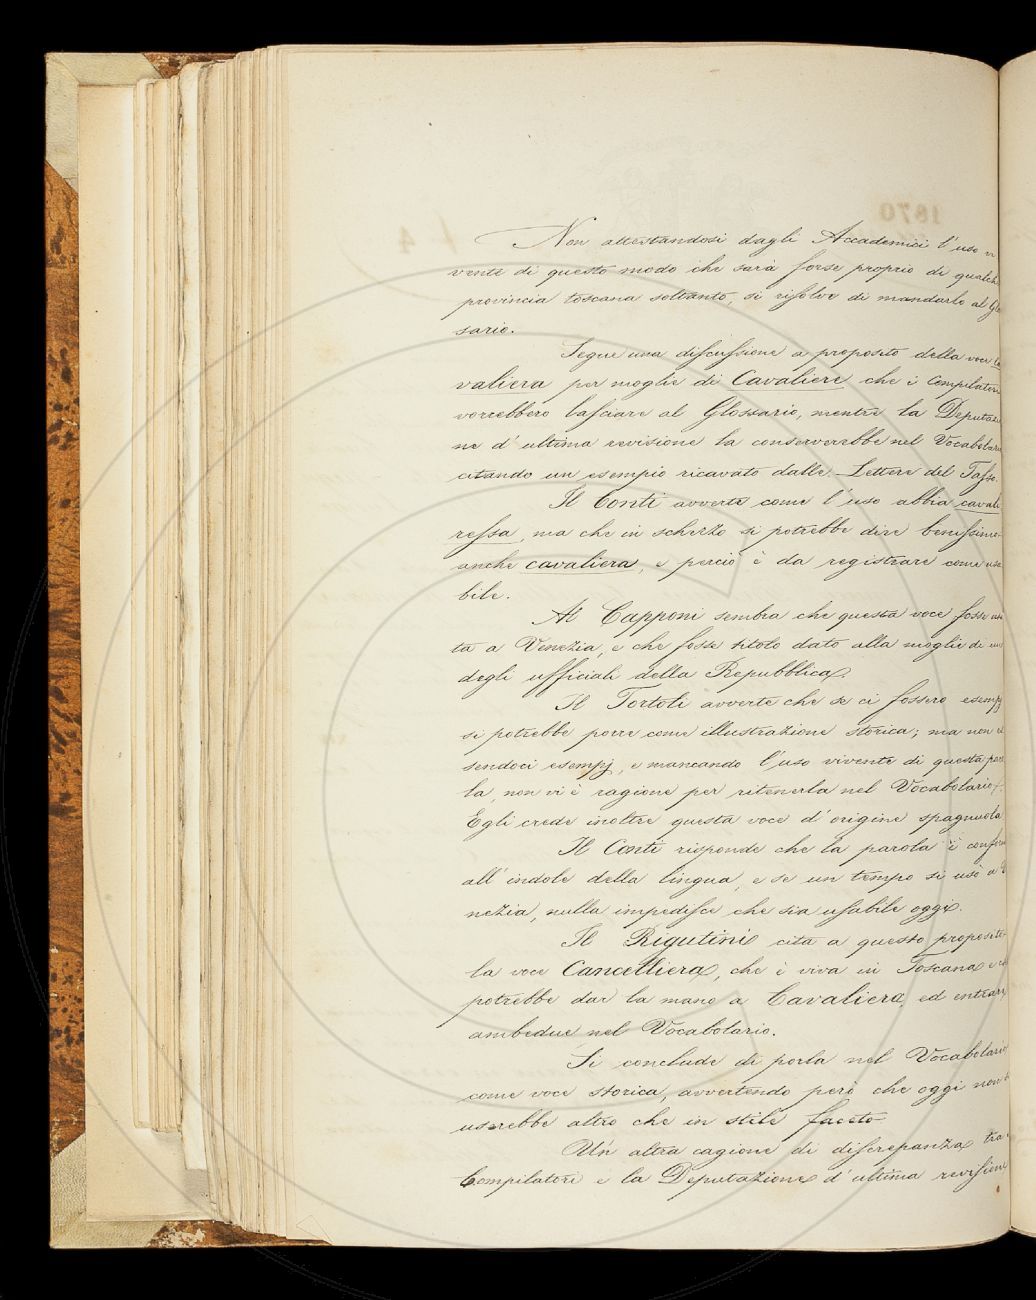 Non attestandosi dagli Accademici l'uso vi
vente di questo modo che sarà forse proprio di qualche
provincia toscana soltanto, si risolve di mandarlo al Glos
sario.
Segue una discussione a proposito della voce Ca
valiera per moglie di Cavaliere che i Compilatori
vorrebbero lasciare al Glossario, mentre la Deputazio
ne d'ultima revisione la conserverebbe nel Vocabolario
citando un esempio ricavato dalle Lettere del Tasso.
Il Conti avverte come l'uso abbia cavali
ressa, ma che in scherzo si potrebbe dire benissimo
anche cavaliera, e perciò è da registrare come usa
bile.
Al Capponi sembra che questa voce fosse usa
ta a Venezia, e che fosse titolo dato alla moglie di uno
degli ufficiali della Repubblica.
Il Tortoli avverte che se ci fossero esempj
si potrebbe porre come illustrazione storica; ma non es
sendoci esempj, e mancando l'uso vivente di questa paro
la, non vi è ragione per ritenerla nel Vocabolario.
Egli crede inoltre questa voce d'origine spagnuola
Il Conti risponde che la parola è conforme
all'indole della lingua, e se un tempo si usò a Ve
nezia, nulla impedisce che sia usabile oggi.
Il Rigutini cita a questo proposito
la voce Cancelliera, che è viva in Toscana e che
potrebbe dar la mano a Cavaliera, ed entrare
ambedue nel Vocabolario.
Si conclude di porla nel Vocabolario
come voce storica, avvertendo però che oggi non si
userebbe altro che in stile faceto
Un altra cagione di discrepanza tra i
Compilatori e la Deputazione d'ultima revisione
1870
4